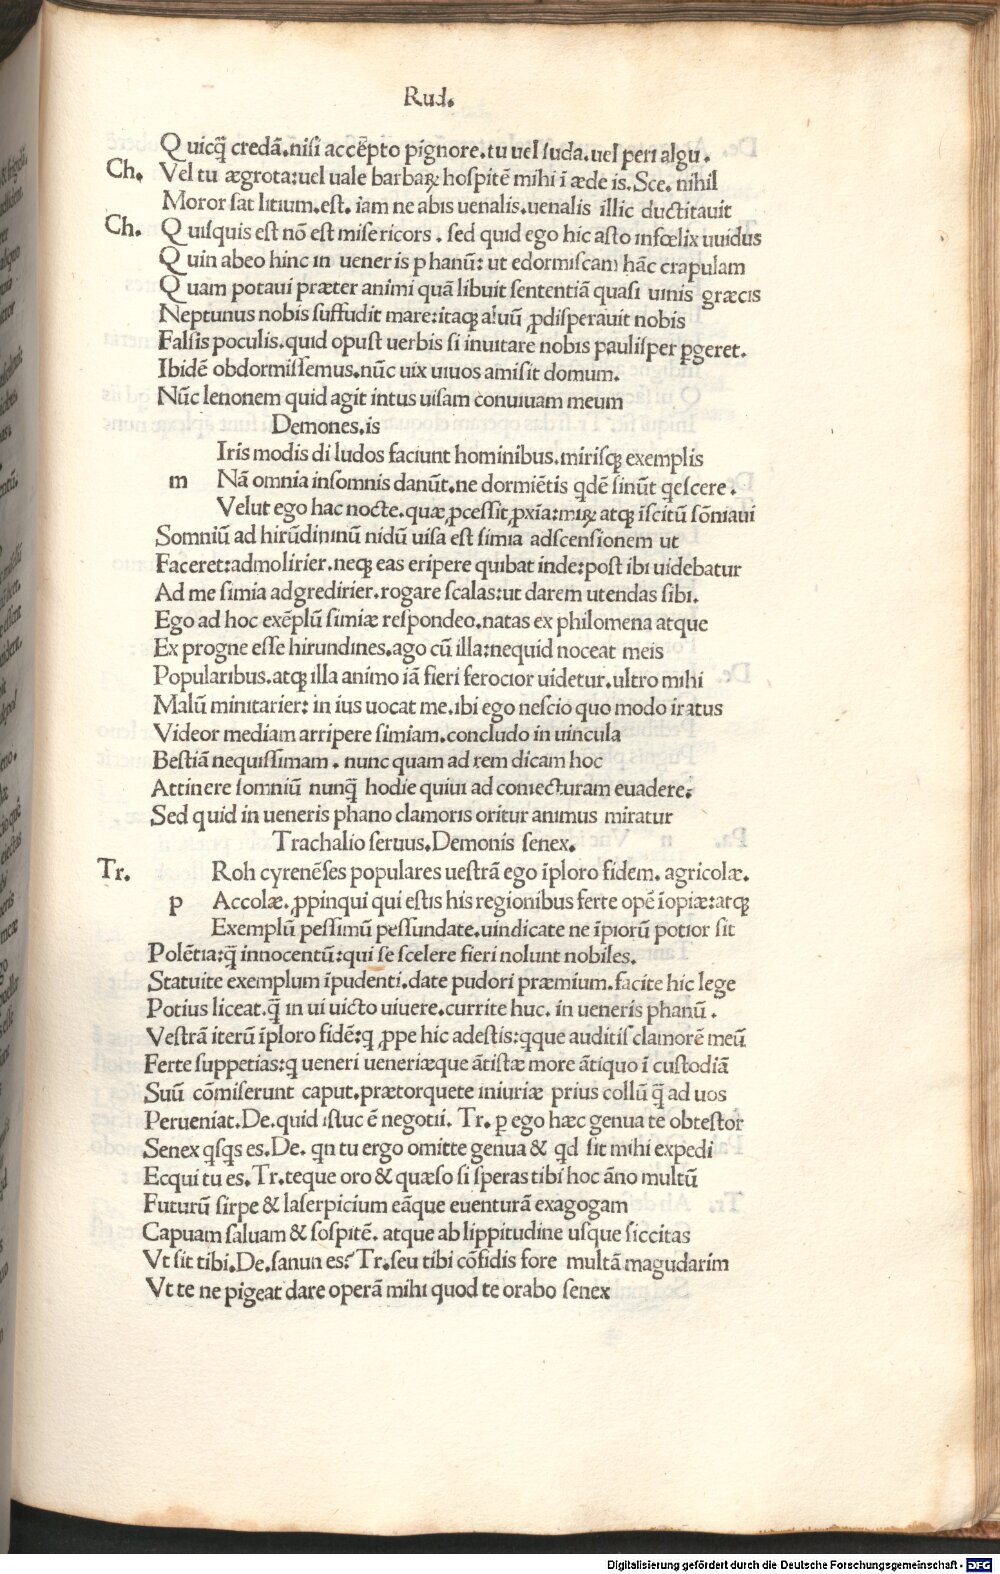 Rud.
Quicq̃ credã.nisi accẽpto pignore.tu uel suda.uel peri algu.
Ch. Vel tu ægrota:uel uale barbaꝝ hospitẽ mihi ĩ æde is.Sce. nihil
Moror sat litium.est. iam ne abis uenalis.uenalis illic ductitauit
Ch. Quisquis est nõ est misericors. sed quid ego hic asto infœlix uuidus
Quin abeo hinc in ueneris phanũ: ut edormiscam hãc crapulam
Quam potaui præter animi quã libuit sententiã quasi uinis græcis
Neptunus nobis suffudit mare:itaqꝫ aluũ ꝓdisperauit nobis
Falsis poculis.quid opust uerbis si inuitare nobis paulisper ꝑgeret.
Ibidẽ obdormissemus.nũc uix uiuos amisit domum.
Nũc lenonem quid agit intus uisam conuiuam meum
Demones.is
Iris modis di ludos faciunt hominibus.mirisqꝫ exemplis
m Nã omnia insomnis danũt.ne dormiẽtis qdẽ sinũt qescere.
Velut ego hac nocte.quæ ꝓcessit ꝓxĩa:miꝝ atqꝫ ĩscitũ sõniaui
Somniũ ad hirũdininũ nidũ uisa est simia adscensionem ut
Faceret:admolirier.neqꝫ eas eripere quibat inde:post ibi uidebatur
Ad me simia adgredirier.rogare scalas:ut darem utendas sibi.
Ego ad hoc exẽplũ simiæ respondeo.natas ex philomena atque
Ex progne esse hirundines.ago cũ illa:nequid noceat meis
Popularibus.atqꝫ illa animo iã fieri ferocior uidetur.ultro mihi
Malũ minitarier: in ius uocat me.ibi ego nescio quo modo iratus
Videor mediam arripere simiam.concludo in uincula
Bestiã nequissimam. nunc quam ad rem dicam hoc
Attinere somniũ nunq̃ hodie quiui ad coniecturam euadere.
Sed quid in ueneris phano clamoris oritur animus miratur
Trachalio seruus.Demonis senex.
Tr. Roh cyrenẽses populares uestrã ego ĩploro fidem. agricolæ.
p Accolæ.ꝓpinqui qui estis his regionibus ferte opẽ ĩopiæ:atqꝫ
Exemplũ pessimũ pessundate.uindicate ne ĩpiorũ potior sit
Polẽtia:q̃ innocentũ:qui se scelere fieri nolunt nobiles.
Statuite exemplum ĩpudenti.date pudori præmium.facite hic lege
Potius liceat.q̃ in ui uicto uiuere.currite huc. in ueneris phanũ.
Vestrã iterũ ĩploro fidẽ:q ꝓpe hic adestis:qque auditis clamorẽ meũ
Ferte suppetias:q ueneri ueneriæque ãtistæ more ãtiquo ĩ custodiã
Suũ cõmiserunt caput.prætorquete iniuriæ prius collũ q̃ ad uos
Perueniat.De.quid istuc ẽ negotii. Tr. ꝑ ego hæc genua te obtestor
Senex qsqs es.De. qn tu ergo omitte genua & qd sit mihi expedi
Ecqui tu es.Tr.teque oro & quæso si speras tibi hoc ãno multũ
Futurũ sirpe & laserpicium eãque euenturã exagogam
Capuam saluam & sospitẽ. atque ab lippitudine usque siccitas
Vt sit tibi.De.sanun es? Tr.seu tibi cõfidis fore multã magudarim
Vt te ne pigeat dare operã mihi quod te orabo senex
Digitalisierung gefördert durch die Deutsche Forschungsgemeinschaft - DFG